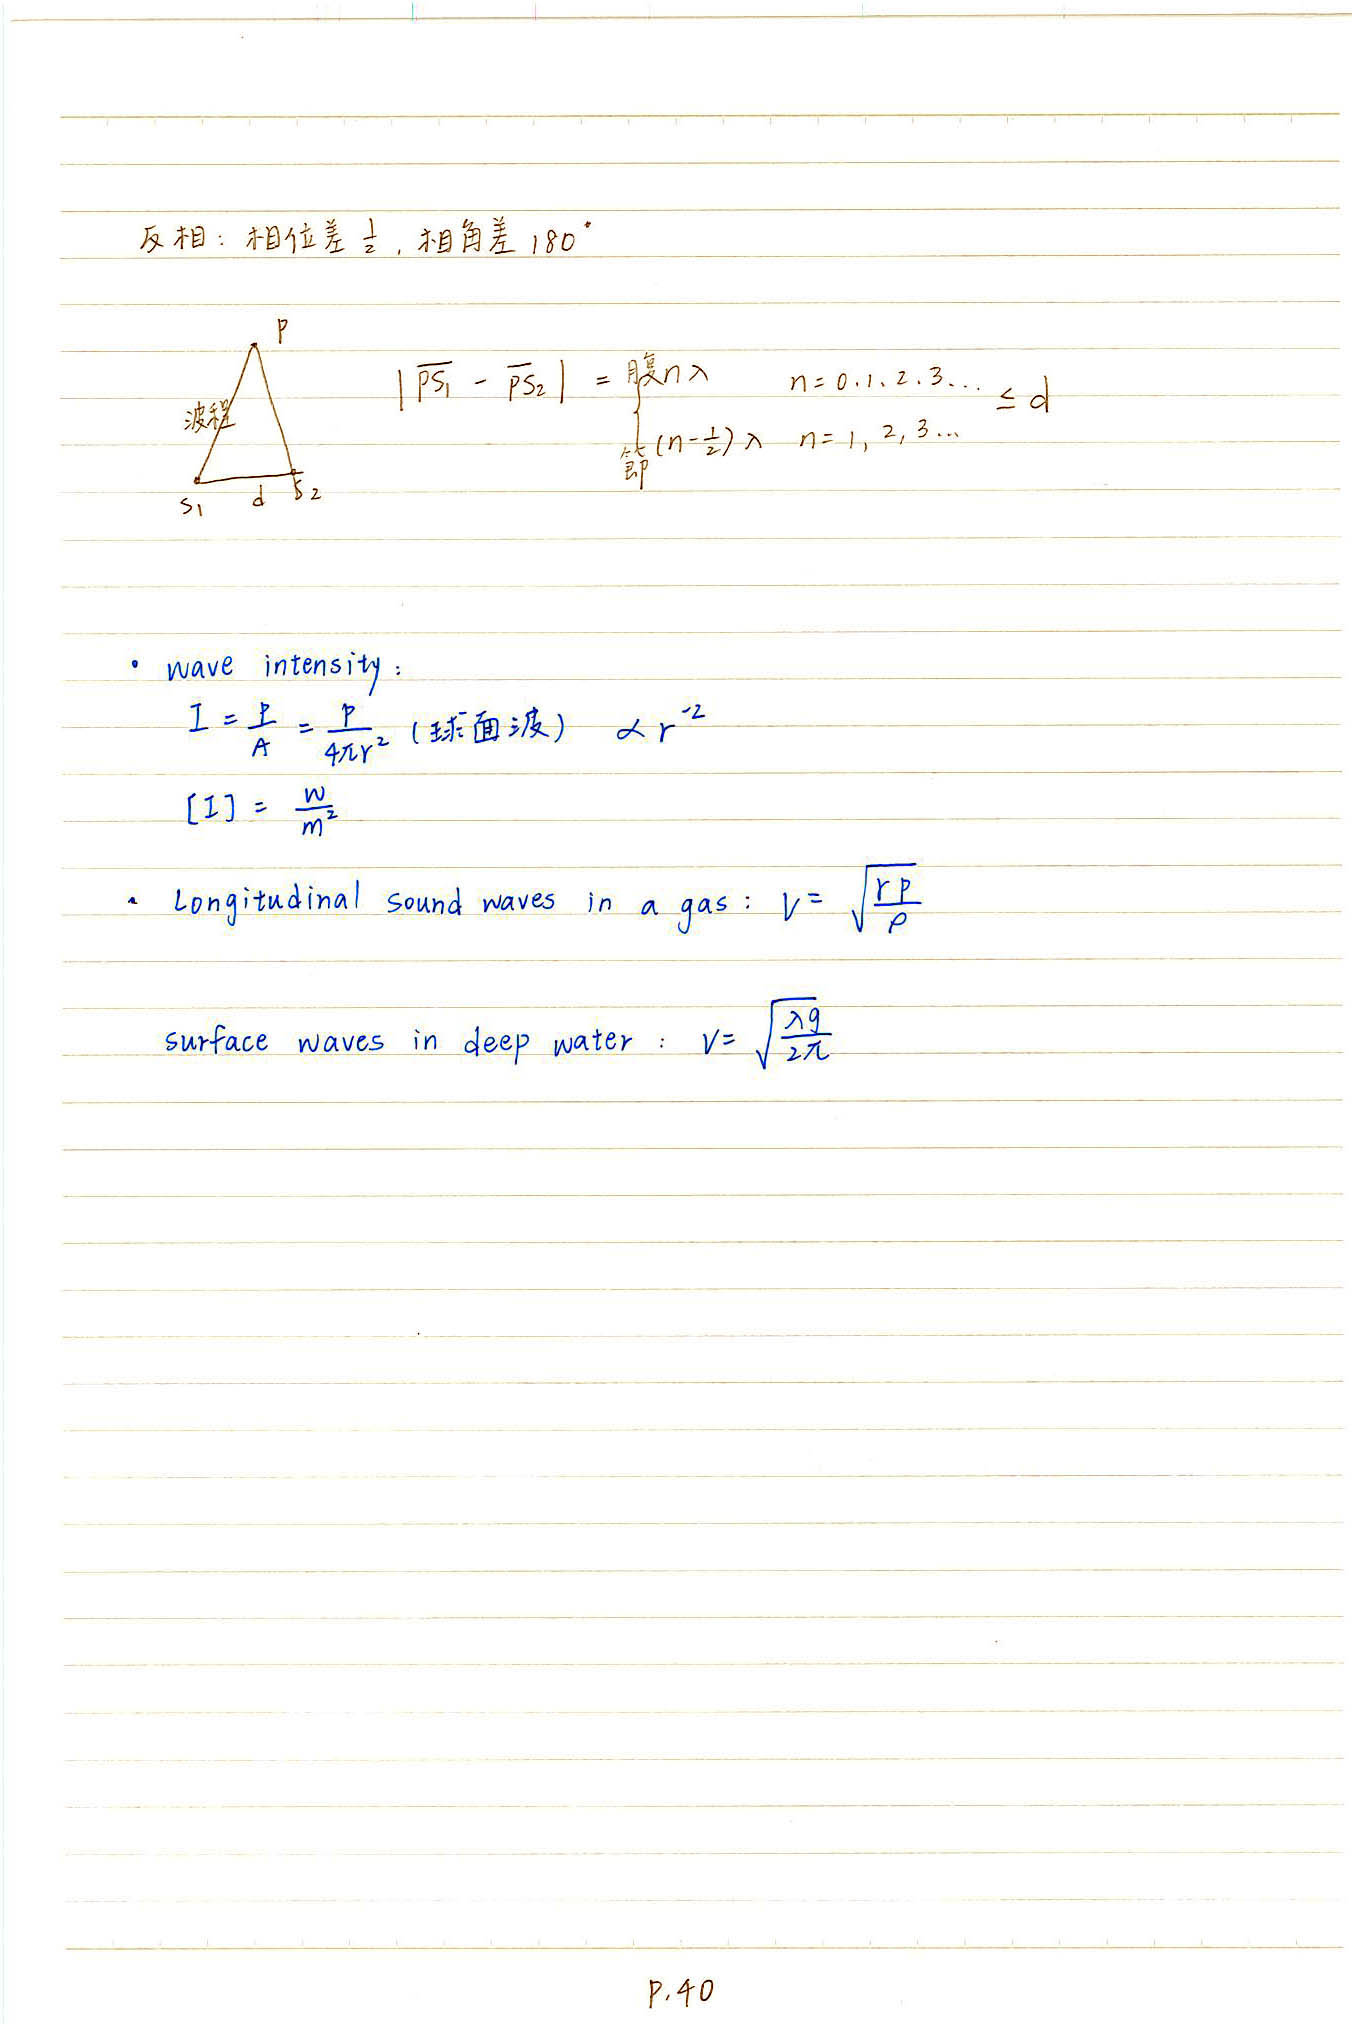 反相：相位差 1/2，相角差 180°
P
|PS₁ - PS₂| = { 腹 nλ n=0.1.2.3... ≤ d
波程
節 (n-1/2)λ n=1,2,3...
S₁ d S₂
• wave intensity:
I = P/A = P/4πr² (球面波) ∝ r⁻²
[I] = W/m²
• Longitudinal sound waves in a gas: v= √(γP/ρ)
surface waves in deep water: v= √(λg/2π)
P.40